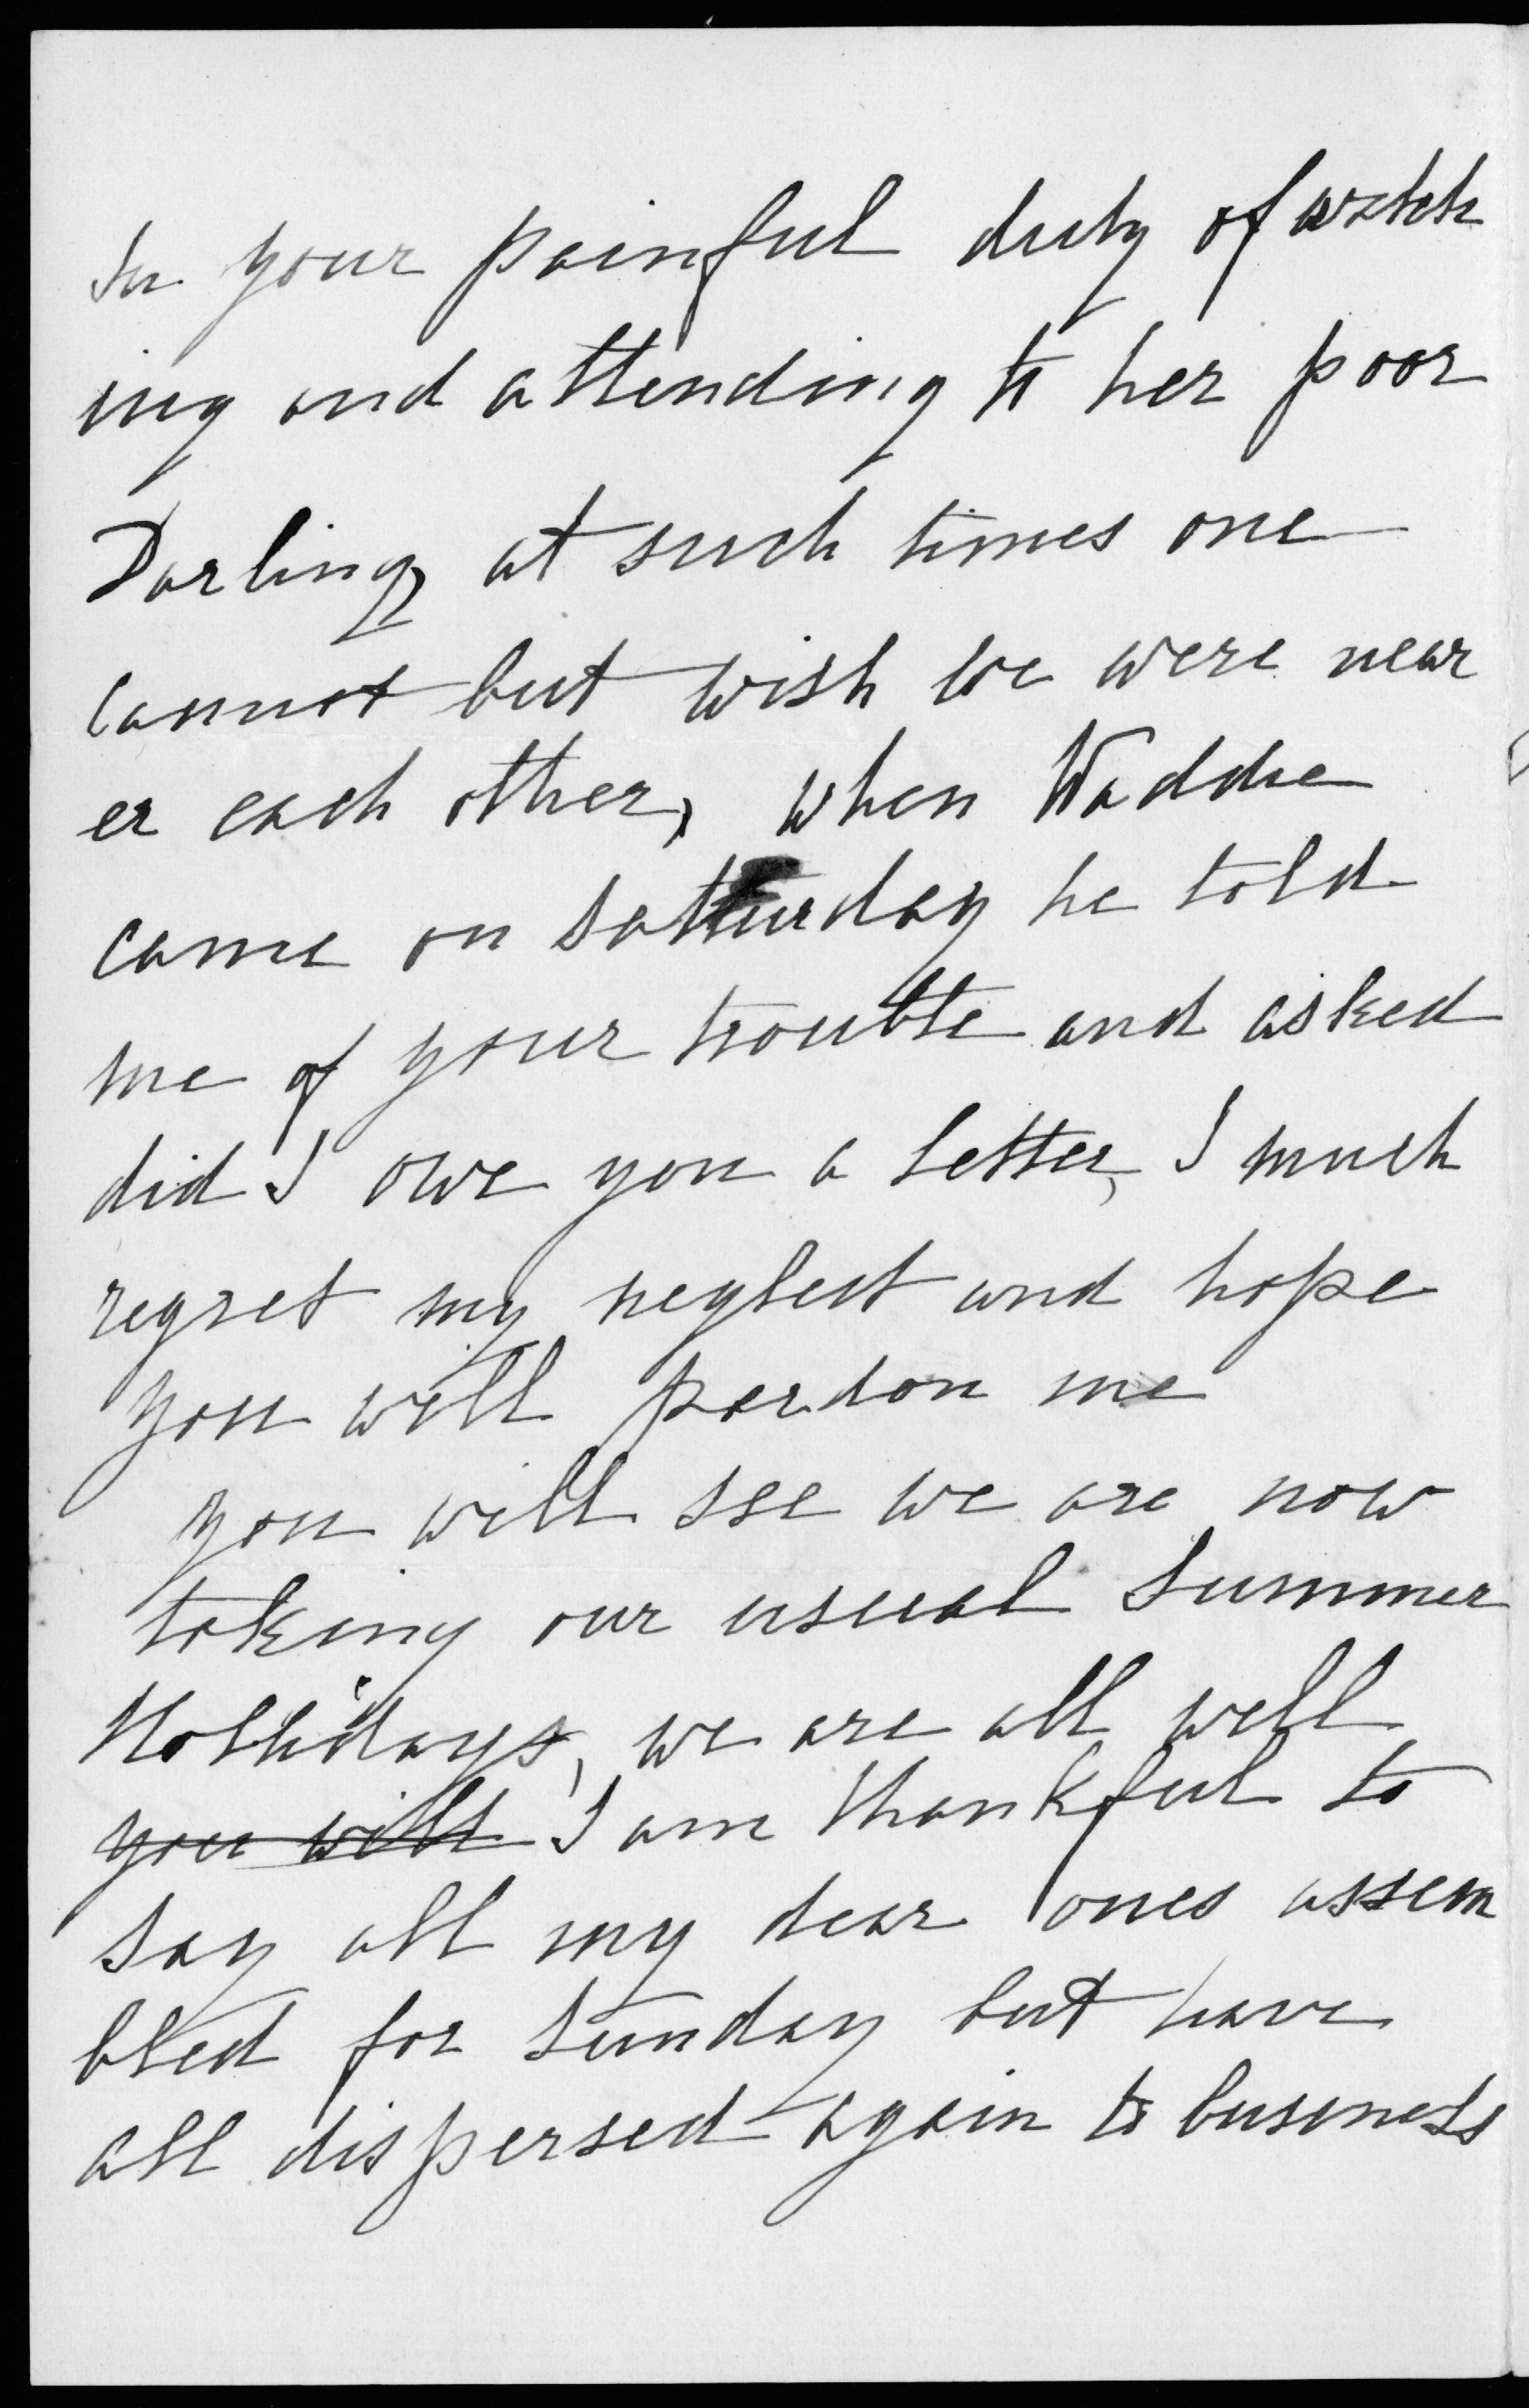 In your painful duty of watch
ing and attending to her poor
Darling, at such times one
cannot but wish we were near
er each other, when Waddie
came on Satturday he told
me of your trouble and asked
did I owe you a letter, I much
regret my neglect and hope
you will pardon me
you will see we are now
taking our usual Summer
Hollidays, we are all well
you will I am thankful to
say all my dear ones assem
bled for Sunday but have
all dispersed again to business